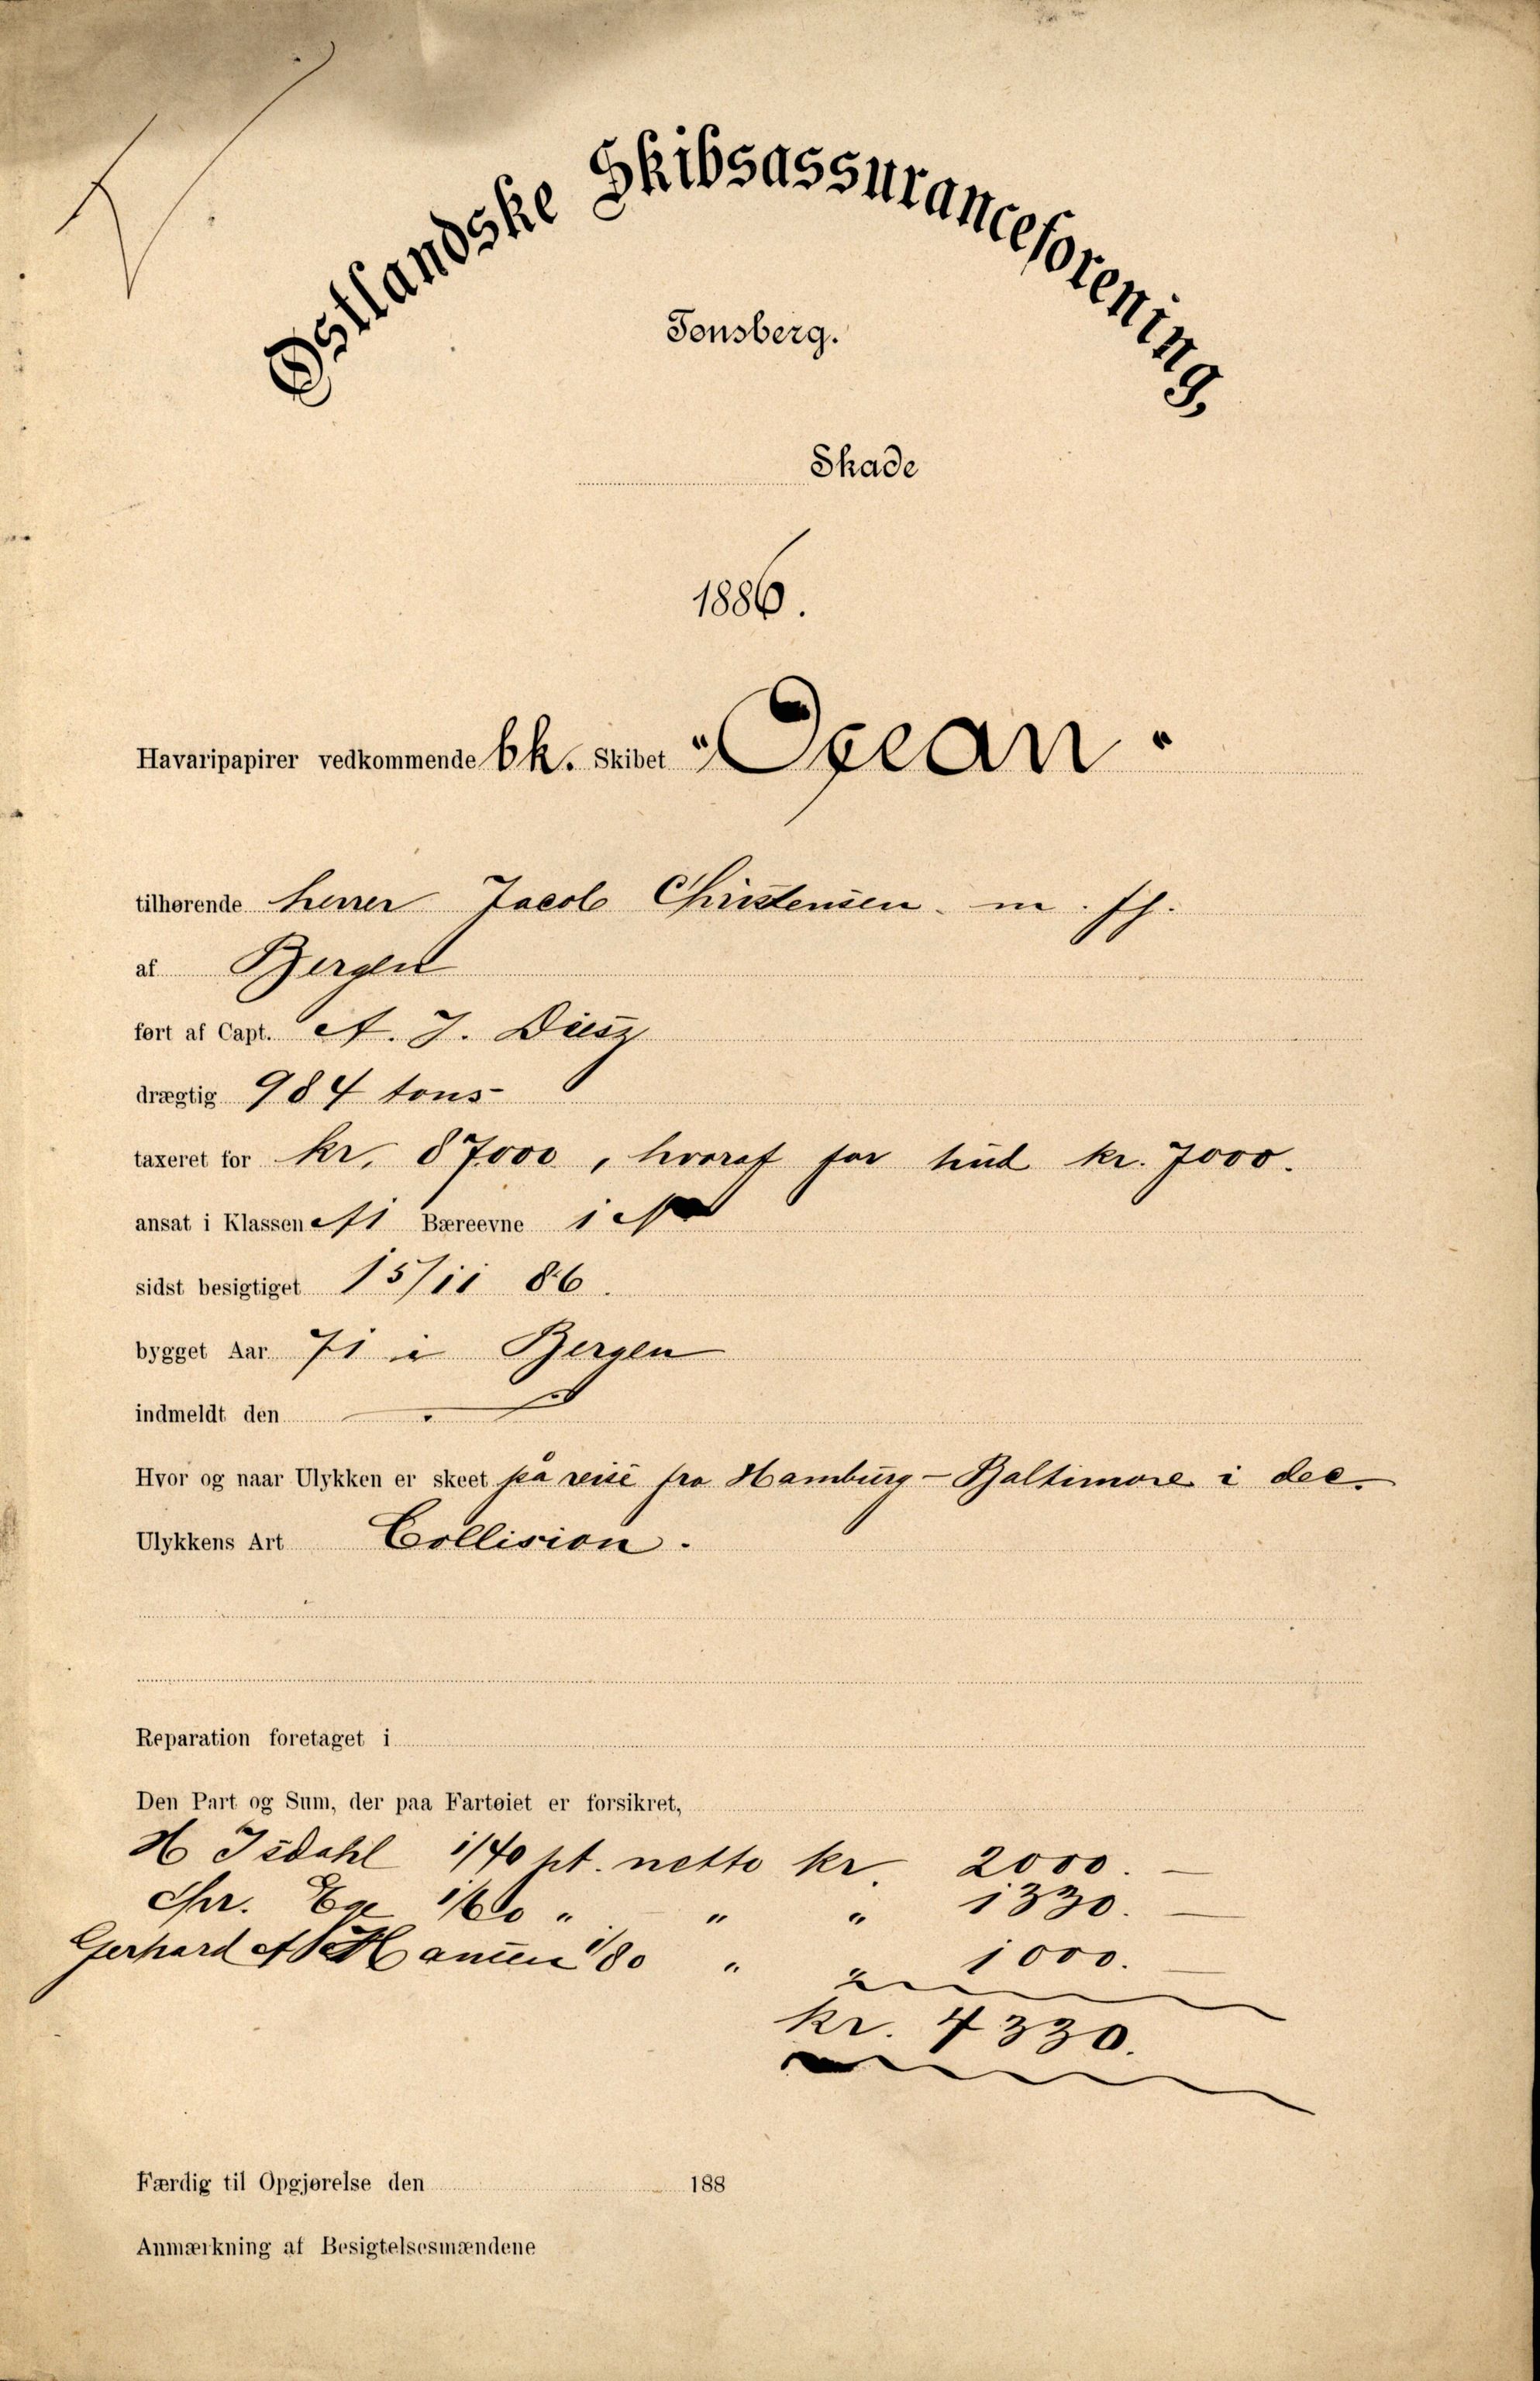 Østlandske Skibsassuranceforening,
Tønsberg.
Skade
1886.
Havaripapirer vedkommende bk. Skibet "Ocean"
tilhørende herrer Jacob Christensen m. fl.
af Bergen
ført af Capt. A. J. Diesz
drægtig 984 tons
taxeret for kr. 87000, hvoraf for hud kr. 7000.
ansat i Klassen A1 Bæreevne 1
sidst besigtiget 15/11 86.
bygget Aar 71 i Bergen
indmeldt den
Hvor og naar Ulykken er skeet på reise fra Hamburg - Baltimore i dec.
Ulykkens Art Collision.
Reparation foretaget i
Den Part og Sum, der paa Fartøiet er forsikret,
H Isdahl 1/40 pt. netto kr. 2000. —
Chr. 1/60 " " " 1330. —
Gerhard Hansen 1/80 " " 1000. —
kr. 4330.
Færdig til Opgjørelse den 188
Anmærkning af Besigtelsesmændene